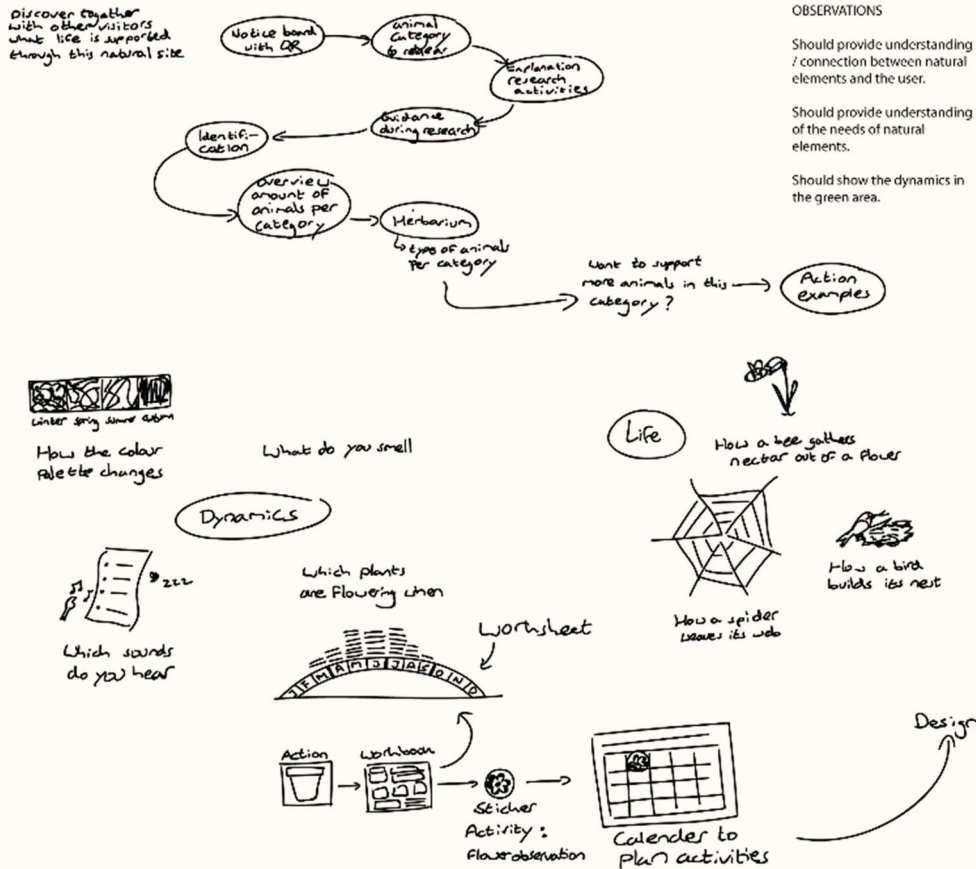 Discover together
with other visitors
what life is supported
through this natural site
Notice board
with QR
animal
Category
to
Explanation
research
activities
Guidance
during research
Identifi-
cation
overview
amount of
animals per
category
Herbarium
↳ type of animals
per category
want to support
more animals in this
category?
Action
examples
OBSERVATIONS
Should provide understanding
/ connection between natural
elements and the user.
Should provide understanding
of the needs of natural
elements.
Should show the dynamics in
the green area.
winter spring summer autumn
How the colour
palette changes
What do you smell
Dynamics
zzz
Which sounds
do you hear
Which plants
are flowering when
Worksheet
J F M A M J J A S O N D
Life
How a bee gathers
nectar out of a flower
How a bird
builds its nest
How a spider
weaves its web
Action
Workbook
Sticker
Activity:
Flower observation
Calender to
plan activities
Design